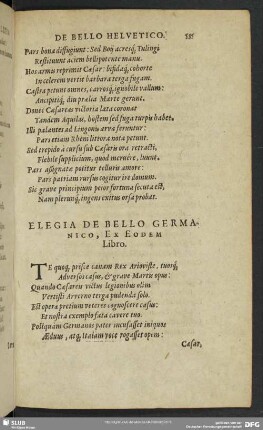 DE BELLO HELVETICO.
Pars bona diffugiunt: Sed Boij acresq́; Tulingi
Restituunt aciem bellipotente manu.
Hos armis reprimit Cæsar: bisdaq́; cohorte
Incelerem vertit barbara terga fugam.
Castra petunt omnes, carrosq́; ignobile vallum:
Ancipitiq́; diu prælia Marte gerunt.
Donec Cæsareas victoria lata coronat
Tandem Aquilas, hostem sed fuga turpis habet,
Illi palantes ad Lingonis arva feruntur:
Pars etiam Rheni littora nota petunt.
Sed trepido à cursu sub Cæsaris ora retracti,
Flebile supplicium, quod meruêre, luunt.
Pars assignatæ potitur telluris amore:
Pars patriam rursus cogitur ire domum.
Sic grave principium peior fortuna secuta est,
Nam plerunq́; ingens exitus orsa probat.
ELEGIA DE BELLO GERMA-
NICO, EX EODEM
Libro.
TE quoq́; priscæ canam Rex Arioviste, tuosq́;
Adversos casus, & grave Martis opus:
Quando Cæsareis victus legionibus olim
Vertisti Arverno terga pudenda solo.
Est operæ pretium veteres cognoscere casus:
Et nostra exemplo fata cavere tuo.
Postquam Germanos pater incusasset iniquos
Æduus, atq́; Italam voce rogasset opem:
Cæsar,
SLUB
DFG